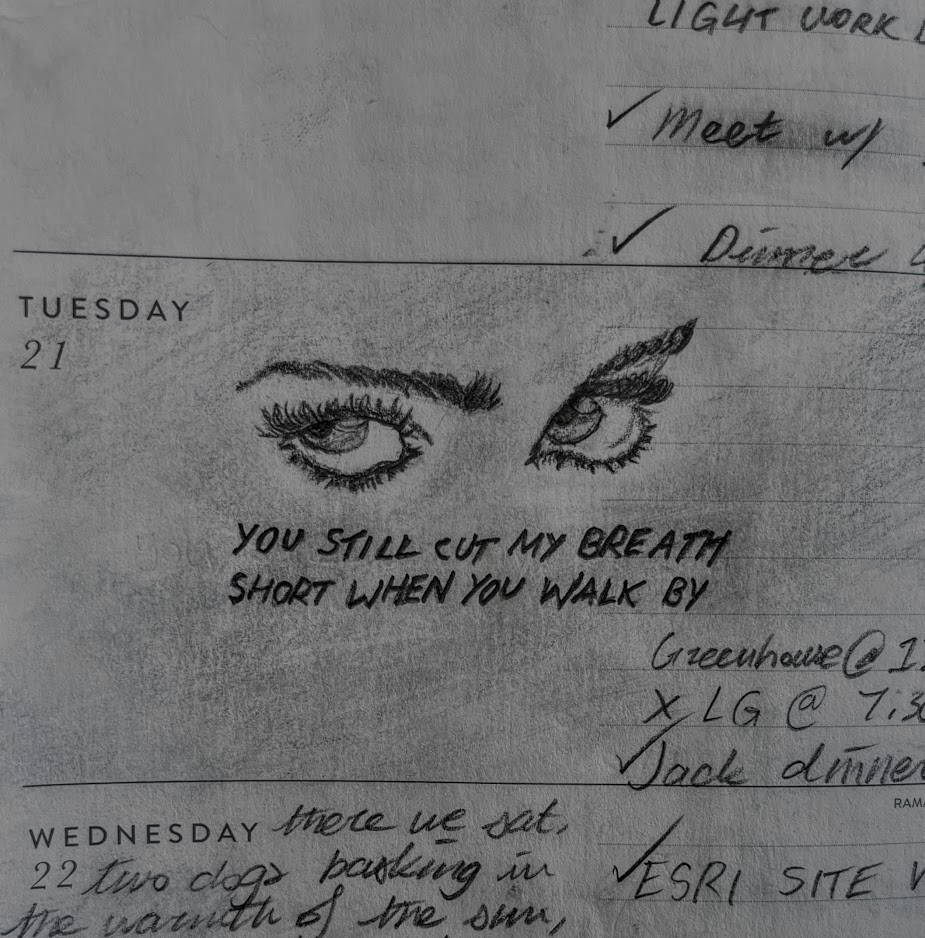 LIGHT WORK
✓ Meet w/
✓ Dinner
TUESDAY
21
YOU STILL CUT MY BREATH
SHORT WHEN YOU WALK BY
Greenhouse @
X LG @ 7:30
✓ Jack dinner
RAMA
WEDNESDAY there we sat,
22 two dogs basking in
the warmth of the sun,
✓ ESRI SITE